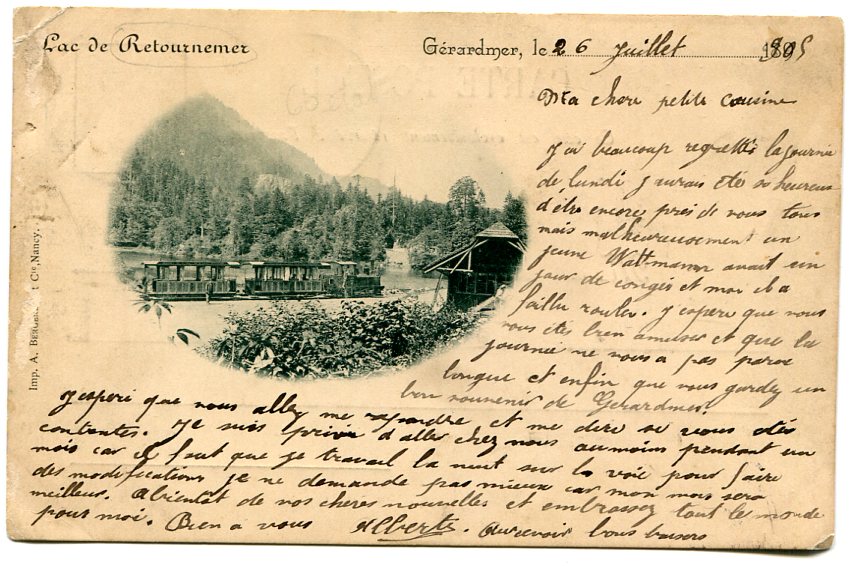 Lac de Retournemer
Gérardmer, le 26 Juillet 1905
Ma chere petite cousine
J'ai beaucoup regretté la journée
de lundi j'aurais étés si heureus
d'être encores près de vous tous
mais malheureusement un
jeune Wattmann avait un
jour de congés et moi il a
fallu rouler. J'espere que vous
vous étés bien amuser et que la
journée ne vous a pas parue
longue et enfin que vous gardez un
bon souvenir de Gerardmer.
J'esperé que vous allez me repondre et me dire si vous étés
contentes. Je suis privée d'aller chez nous au moins pendant un
mois car il faut que je travail la nuit sur la voie pour faire
des modifications je ne demande pas mieux car mon mois sera
meilleur. Abientôt de vos chères nouvelles et embrassez tout le monde
pour moi. Bien a vous Alberts. Aurevoir bons baisers
Imp. A. Cie, Nancy.